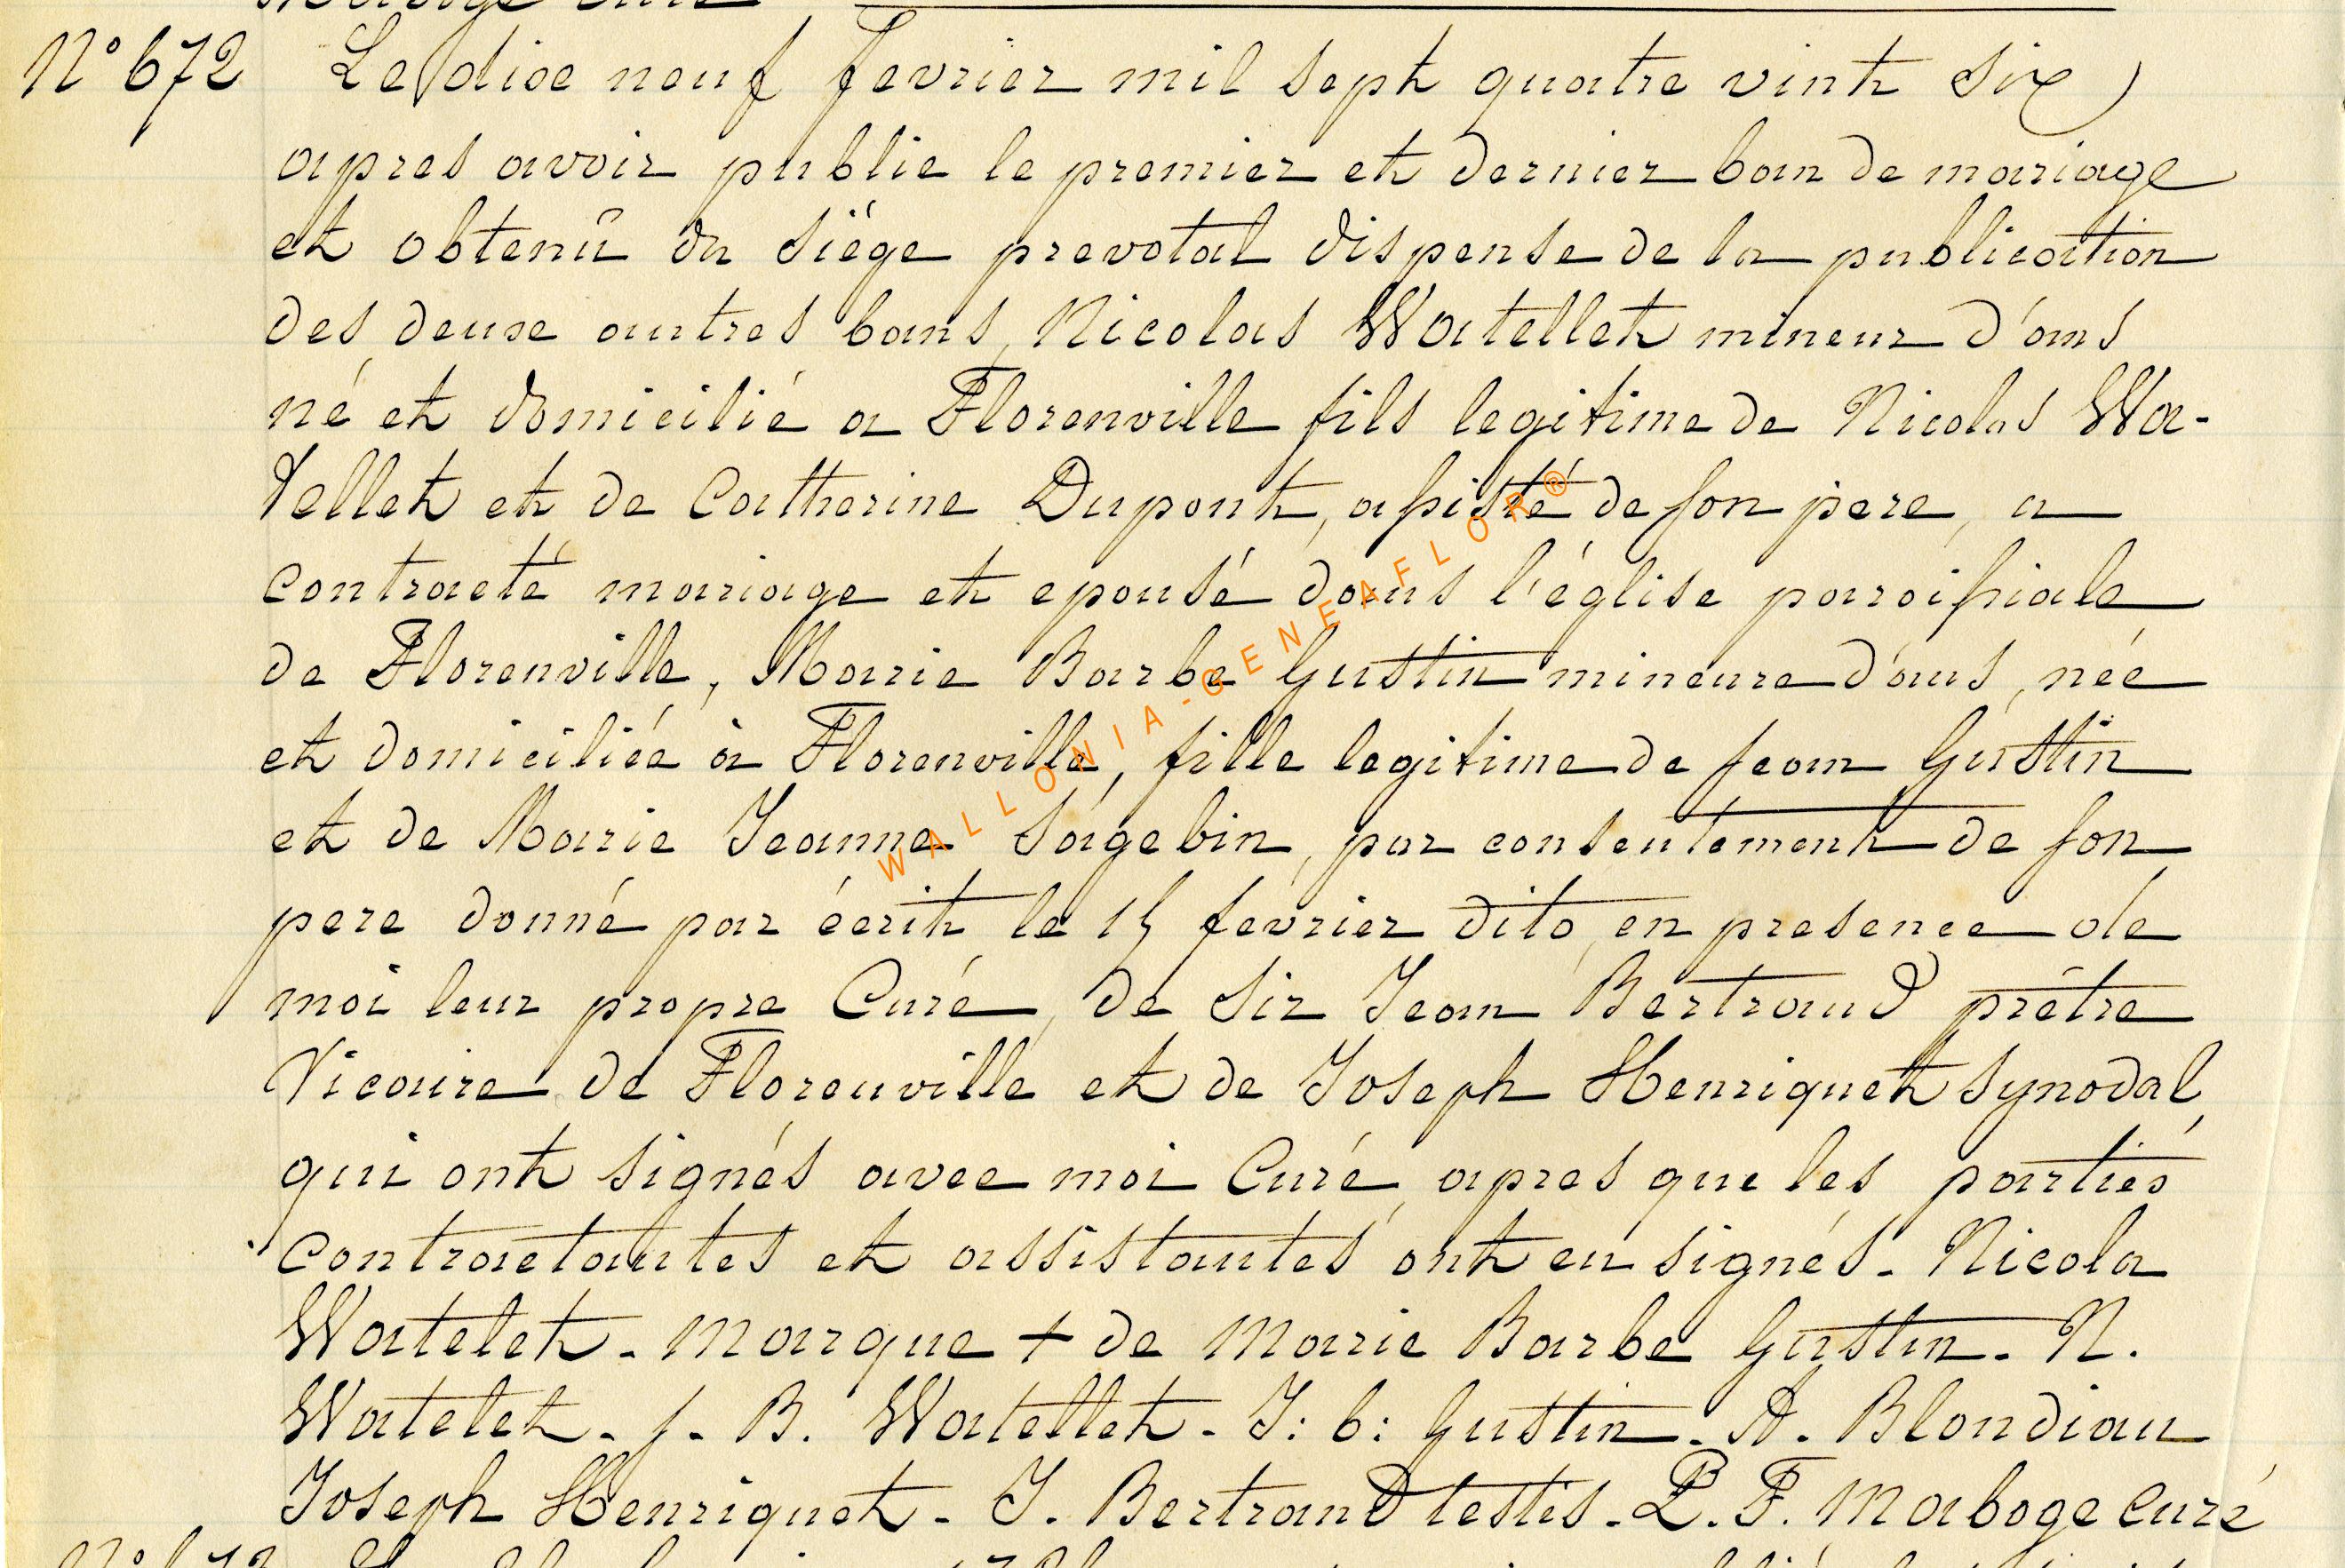 N° 672 Le dixe neuf fevrier mil sept quatre vint six
apres avoir publie le premier et dernier ban de mariage
et obtenû du siége prevotal dispense de la publication
des deuxe autres bans, Nicolas Watellet mineur d'ans
né et domicilié a Florenville fils legitime de Nicolas Wa-
tellet et de Catherine Dupont, assisté de son pere, a
contracté mariage et epousé dans l'église paroissiale
de Florenville, Marie Barbe Gustin mineure d'ans, née
et domiciliée à Florenville, fille legitime de jean Gustin
et de Marie Jeanne Sagebin, par consentement de son
pere donné par écrit le 15 fevrier dito, en presence de
moi leur propre Curé, de Sir Jean Bertrand prêtre
Vicaire de Florenville et de Joseph Henriquet synodal,
qui ont signés avec moi Curé, apres que les parties
contractantes et assistantes ont eu signés. Nicola
Watelet. marque + de Marie Barbe Gustin. N.
Watelet. j. B. Watellet. J: b: Gustin. A. Blondiau
Joseph Henriquet. J. Bertrand testis. P. F. Maboge Curé
WALLONIA-GENEAFLOR®